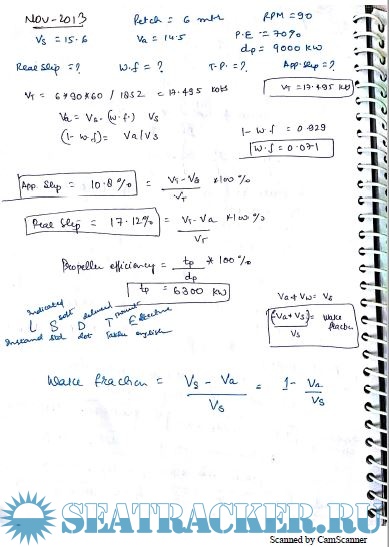 NOV-2013 Pitch = 6 mtr RPM = 90
Vs = 15.6 Va = 14.5 P.E = 70%
dp = 9000 KW
Real slip = ? W.f = ? T.P. = ? App. slip = ?
VT = 6*90*60 / 1852 = 17.495 kots
VT = 17.495 kts
Va = Vs - (W.f.) Vs
(1- W.f) = Va/Vs
1- W.f = 0.929
W.f = 0.071
App. slip = 10.8% = VT - Vs / VT *100%
Real slip = 17.12% = VT - Va / VT *100%
Propeller efficiency = tp / dp * 100%
tp = 6300 KW
Va + Vw = Vs
(-Va + Vs) / Vs = wake fraction
Indicated shaft delivered thrust Effective
I S D T E
std dot taken english
Wake fraction = Vs - Va / Vs = 1 - Va / Vs
SEATRACKER.RU
Scanned by CamScanner